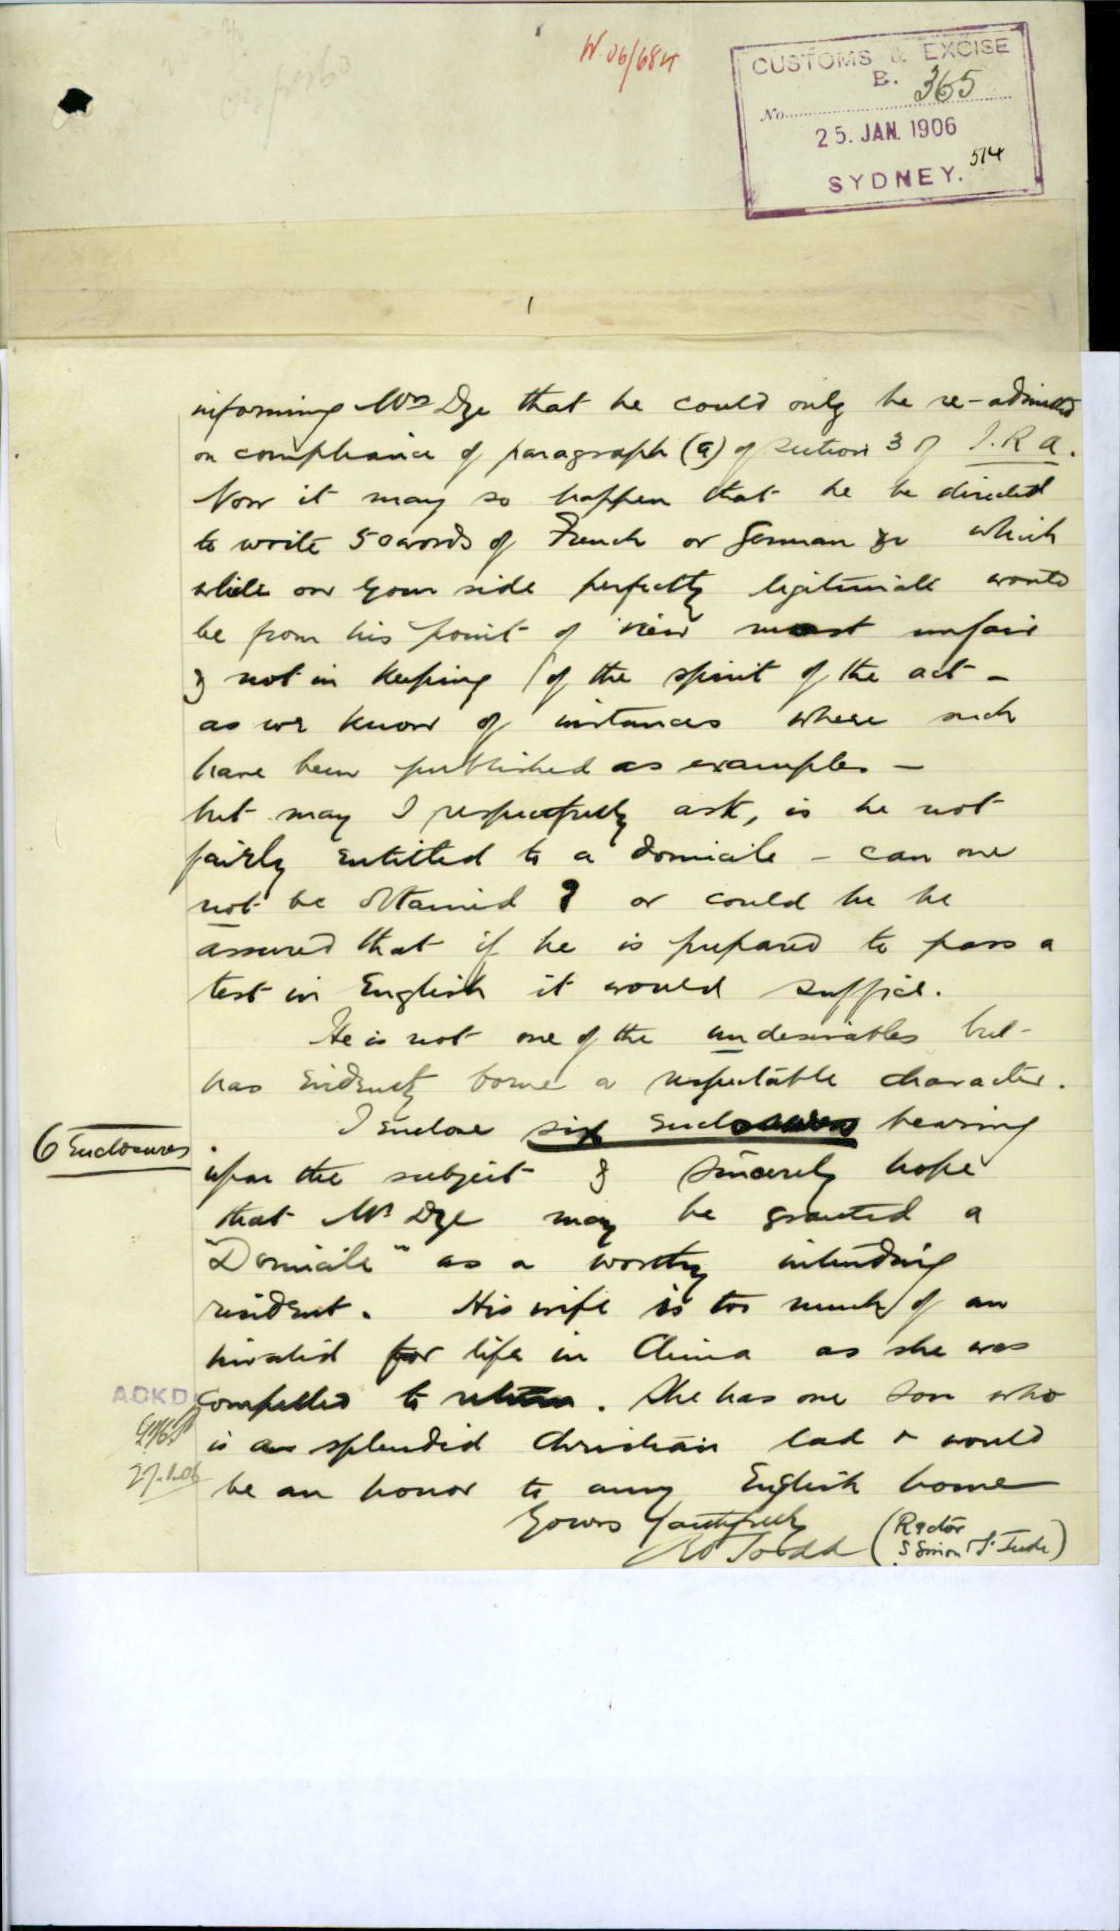 W 06/684
CUSTOMS & EXCISE
B. 365
No.
25. JAN. 1906
514
SYDNEY.
1
informing Mrs Dye that he could only be re-admitted
on compliance of paragraph (a) of section 3 of I.R.A.
Now it may so happen that he be directed
to write 50 words of French or German which
while on your side perfectly legitimate would
be from his point of view most unfair
& not in keeping of the spirit of the act -
as we know of instances where such
have been published as examples -
but may I respectfully ask, is he not
fairly entitled to a domicile - can one
not be obtained ? or could he be
assured that if he is prepared to pass a
test in English it would suffice.
He is not one of the undesirables but
has evidently borne a respectable character.
6 Enclosures
I enclose six enclosures bearing
upon the subject & sincerely hope
that Mr Dye may be granted a
"Domicile" as a worthy intending
resident. His wife is too much of an
invalid for life in China as she was
ACKD
compelled to return. She has one son who
is a splendid Christian lad & would
27.1.06
be an honor to any English home
Yours faithfully
Todd (Rector
S Simon & S. Jude)